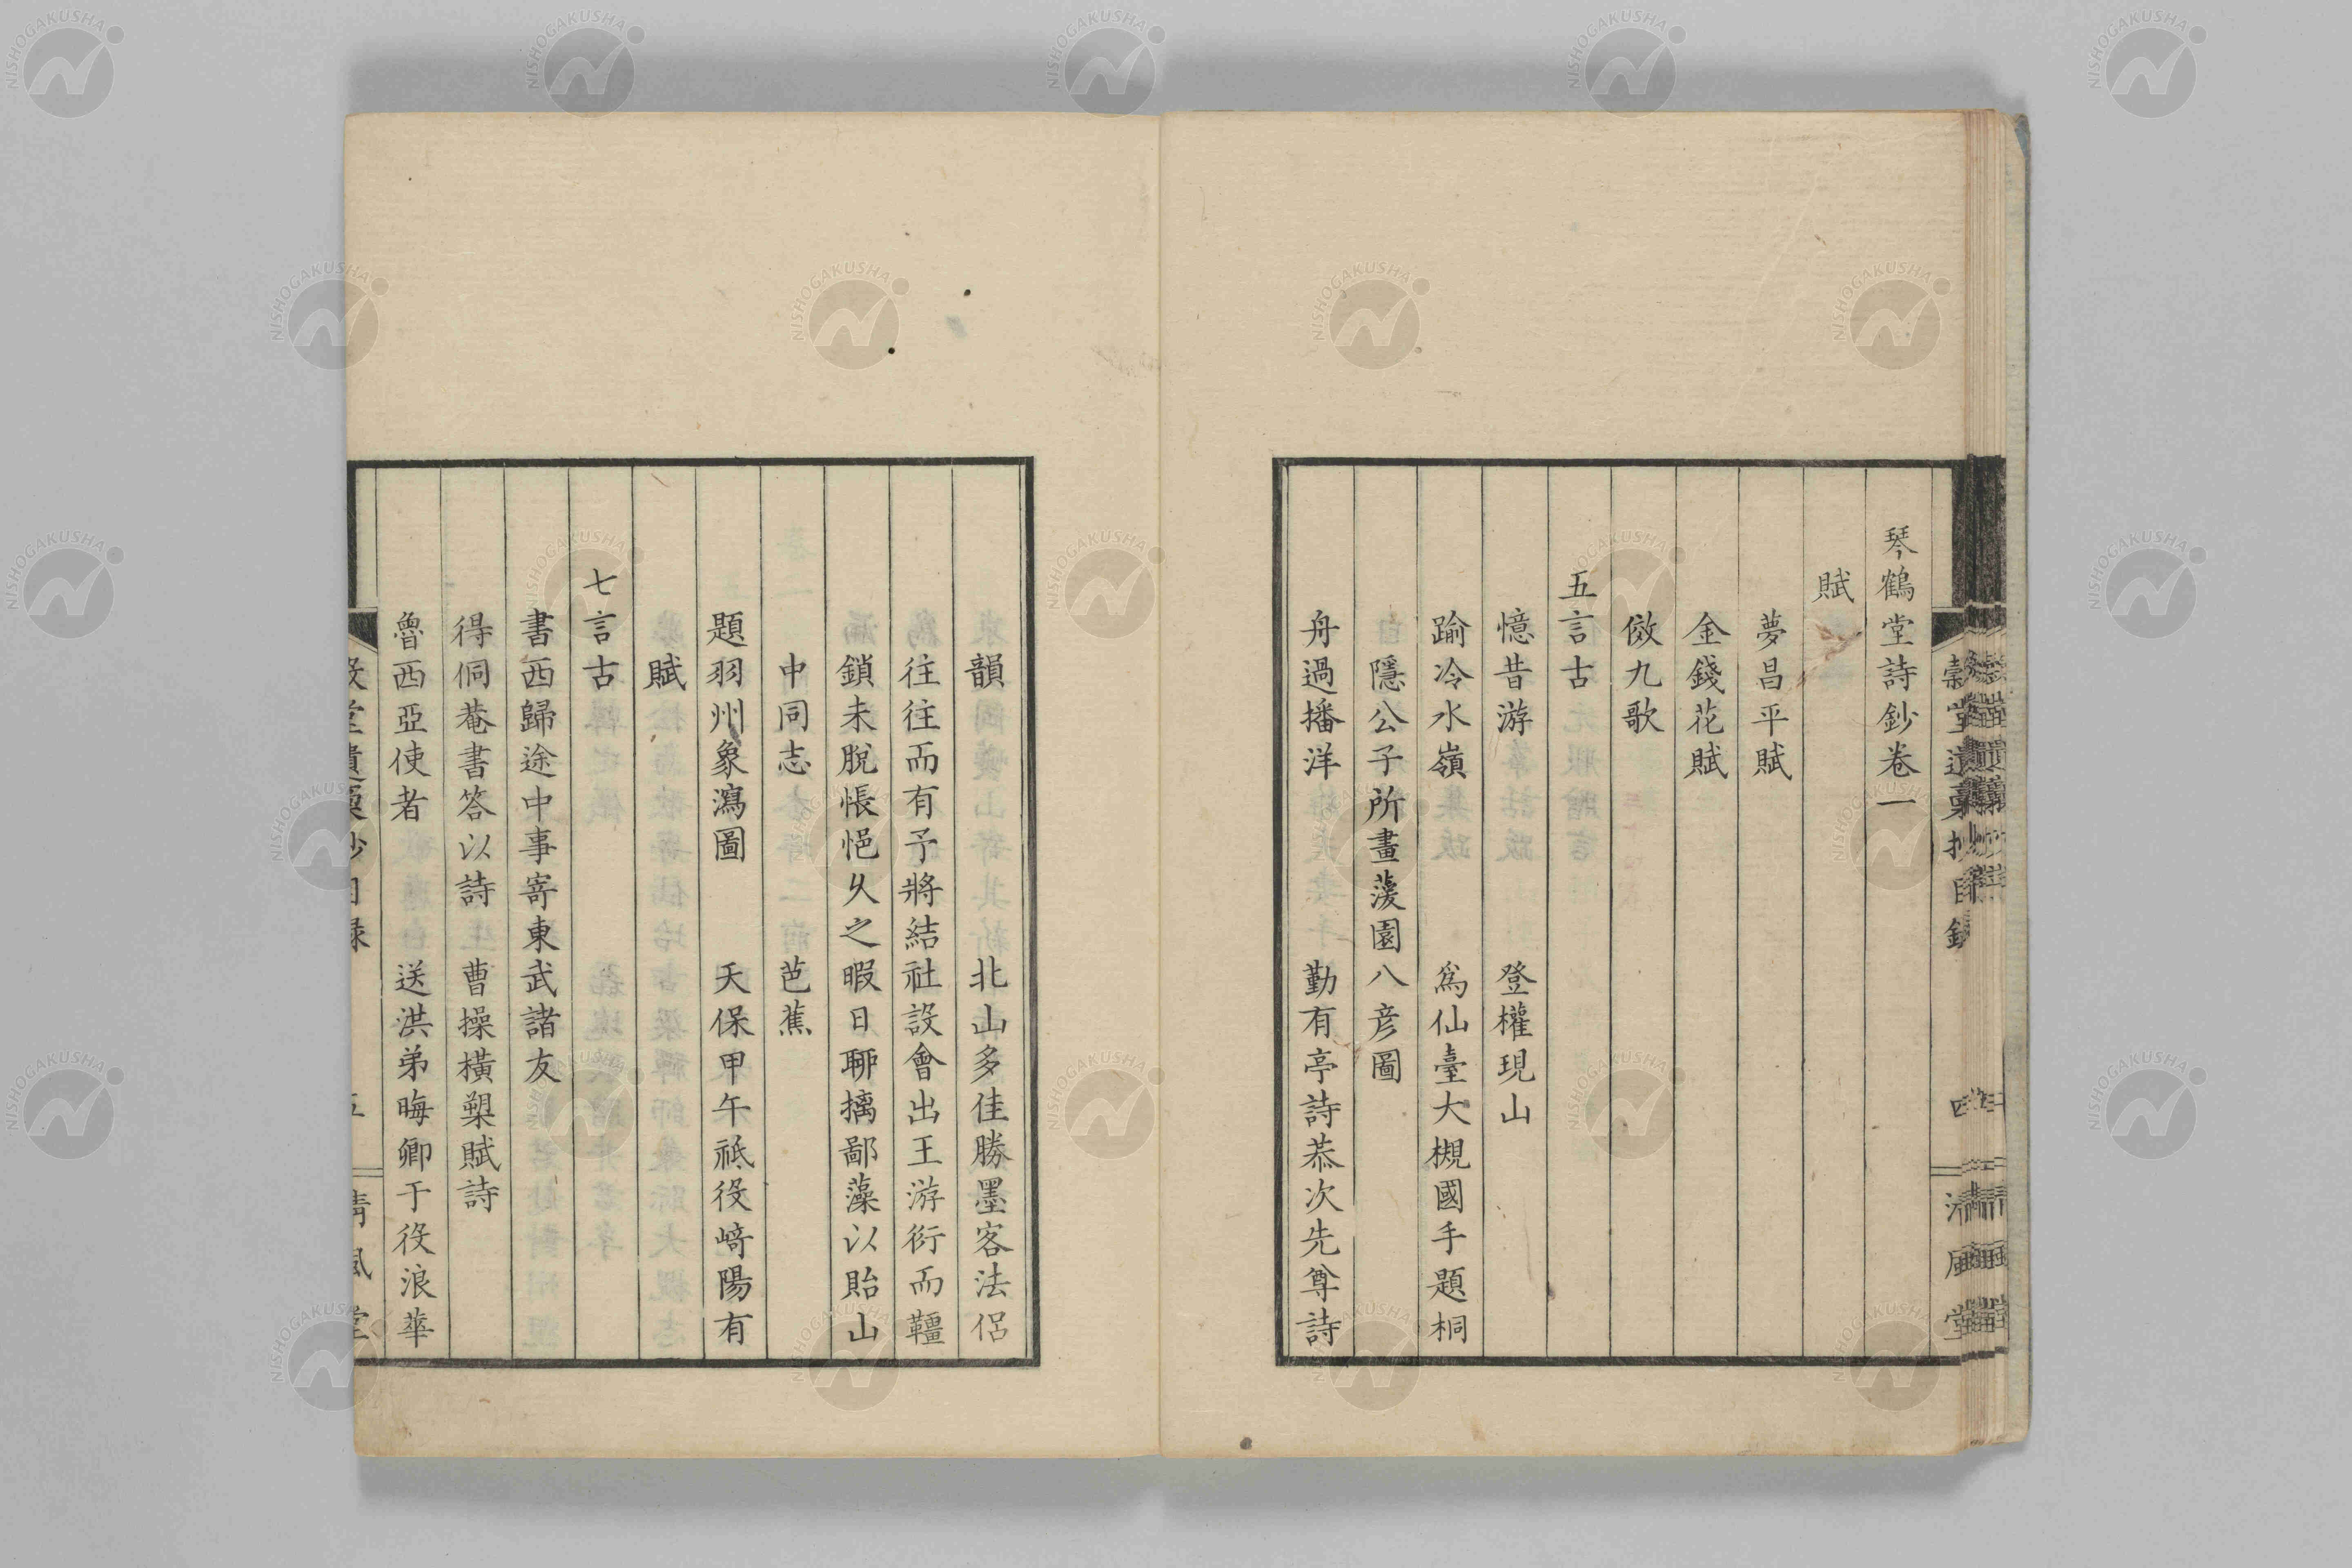 琴鶴堂詩鈔卷一
賦
夢昌平賦
金錢花賦
倣九歌
五言古
憶昔游　登權現山
踰冷水嶺　爲仙臺大槻國手題桐
隱公子所畫蘐園八彦圖
舟過播洋　勤有亭詩恭次先尊詩
韻　北山多佳勝墨客法侶
往往而有予將結社設會出王游衍而韁
鎖未脫悵悒久之暇日聊摛鄙藻以貽山
中同志　芭蕉
題羽州象瀉圖　天保甲午祗役﨑陽有
賦
七言古
書西歸途中事寄東武諸友
得侗菴書答以詩　曹操橫槊賦詩
魯西亞使者　送洪弟晦卿于役浪華
五
清風堂
NISHOGAKUSHA